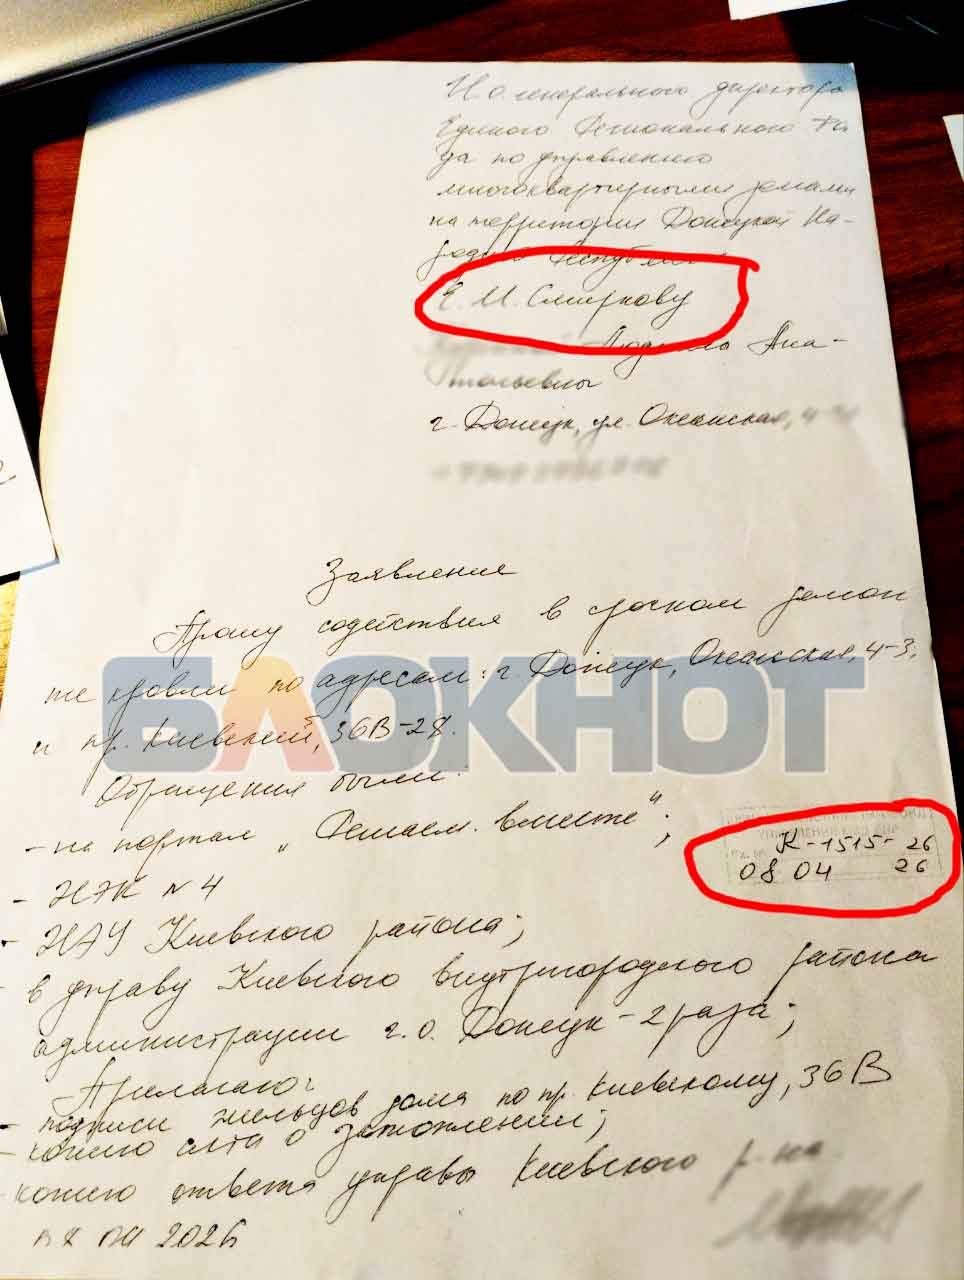 И.о. генерального директора
Единого Регионального Фон
да по управлению
многоквартирными домами
на территории Донецкой На-
родной Республики
Е. М. Смирнову
Людмилы Ана-
тольевны
г. Донецк, ул. Океанская, 4
Заявление
Прошу содействия в срочном ремон
те кровли по адресам: г. Донецк, Океанская, 4-3,
и пр. Киевский, 36В-28.
БЛОКНОТ
Обращения были:
- на портал „Решаем вместе";
К-1515-26
08 04 26
- ЖЭК №4
- ЖАУ Киевского района;
- в управу Киевского внутригородского района
администрации г.о. Донецк - 2 раза;
Прилагаю:
- подписи жильцов дома по пр. Киевскому, 36В
- копию акта о затоплении;
- копию ответа управы Киевского р-на
2026